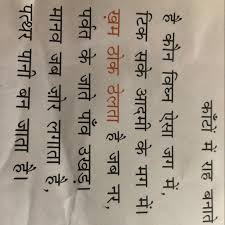 काँटों में राह बनाते
है कौन विघ्न ऐसा जग में,
टिक सके आदमी के मग में।
खुम ठोक ठेलता है जब नर,
पर्वत के जाते पाँव उखड़।
मानव जब जोर लगाता है,
पत्थर पानी बन जाता है।